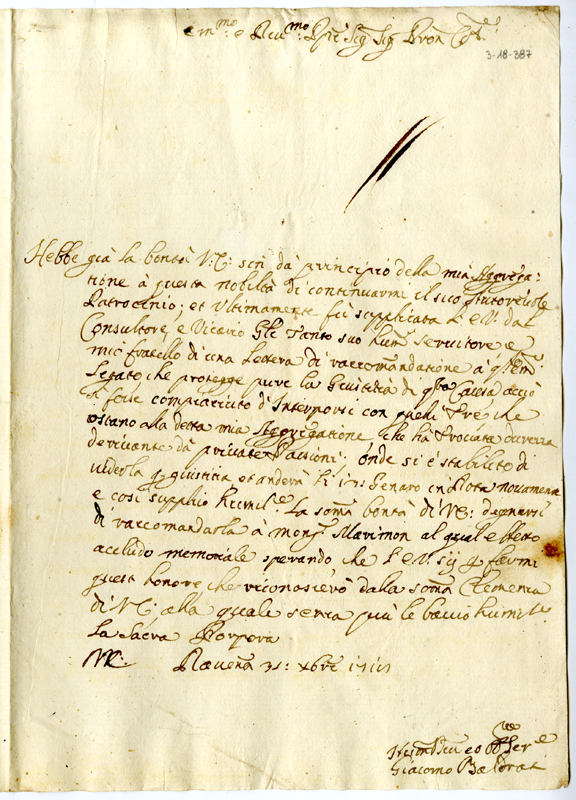 Em.mo e Reu.mo Pre Sig Sig Pron Col.
3-18-387
Hebbe già la bontà V: E: sin dà principio della mia Aggrega:
tione à questa nobiltà di continuarmi il suo
Patrocinio; et Ultimamente fù supplicata L'E V. dal
Consultore, e Vicario Gle Santo suo hum Servitore e
mio fratello di una lettera di raccomandatione à q.to Em.
Legato che protegge pure la Giustitia di q.ta Causa acciò
si fosse compiaciuto d'Interporsi con quelli Tre che
ostano alla detta mia Aggregatione, che hà durezza
derivante dà private Passioni; onde si è stabilito di
uederla p giustitia et anderà li Genaro in Rota novamente
e così supplico humil.e La somã bontà di VE: degnarsi
di raccomandarla à Mons. Marimon al qual effetto
accludo memoriale sperando che l'E V. sij p farmi
questo honore, che riconoscierò dalla somã Clemenza
di VE alla quale senza più le baccio humil.te
La Sacra Porpora
Ravenã 31: xbre
Giacomo